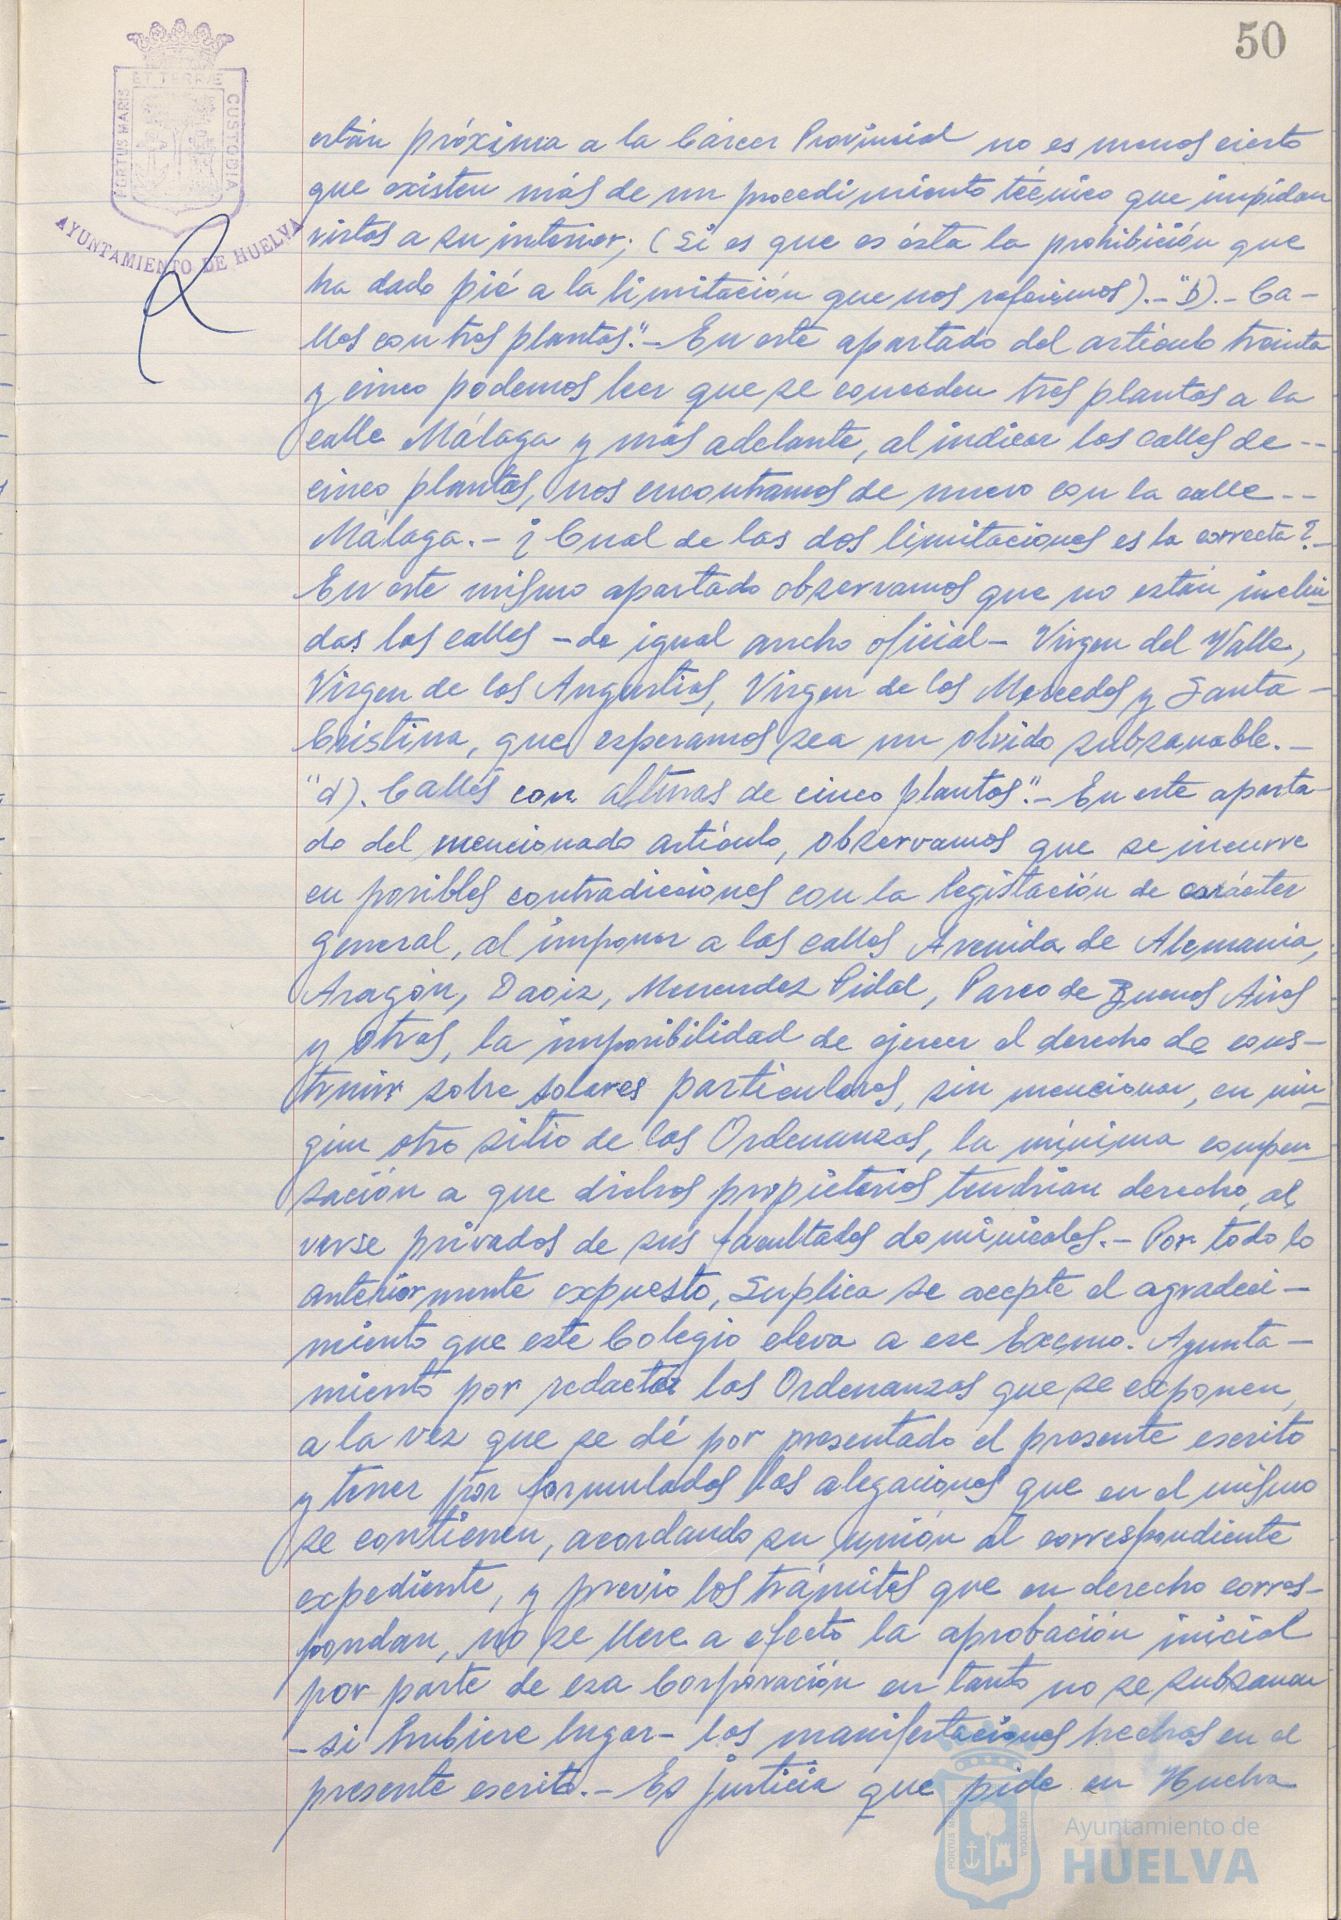 50
PORTUS MARIS ET TERRÆ CUSTODIA
AYUNTAMIENTO DE HUELVA
están próxima a la Cárcer Provincial no es menos cierto
que existen más de un procedimiento técnico que impidan
vistas a su interior; (si es que es ésta la prohibición que
ha dado pié a la limitación que nos referimos).- "b).- Ca-
lles con tres plantas".- En este apartado del artículo treinta
y cinco podemos leer que se conceden tres plantas a la
calle Málaga y más adelante, al indicar las calles de --
cinco plantas, nos encontramos de nuevo con la calle --
Málaga.- ¿Cual de las dos limitaciones es la correcta?-
En este mismo apartado observamos que no están inclui-
das las calles -de igual ancho oficial- Virgen del Valle,
Virgen de las Angustias, Virgen de las Mercedes y Santa -
Cristina, que esperamos sea un olvido subsanable.-
"d). Calles con alturas de cinco plantas".- En este aparta-
do del mencionado artículo, observamos que se incurre
en posibles contradicciones con la legislación de carácter
general, al imponer a las calles Avenida de Alemania,
Aragón, Daoiz, Menendez Pidal, Paseo de Buenos Aires
y otras, la imposibilidad de ejercer el derecho de cons-
truir sobre solares particulares, sin mencionar, en nin-
gún otro sitio de las Ordenanzas, la mínima compen-
sación a que dichos propietarios tendrían derecho, al
verse privados de sus facultades dominicales.- Por todo lo
anteriormente expuesto, Suplica se acepte el agradeci-
miento que este Colegio eleva a ese Excmo. Ayunta-
miento por redactar las Ordenanzas que se exponen,
a la vez que se dé por presentado el presente escrito
y tener por formulados las alegaciones que en el mismo
se contienen, acordando su unión al correspondiente
expediente, y previo los trámites que en derecho corres-
pondan, no se lleve a efecto la aprobación inicial
por parte de esa Corporación en tanto no se subsanan
-si hubiere lugar- las manifestaciones hechas en el
presente escrito.- Es justicia que pide en Huelva
PORTUS MARIS CUSTODIA
Ayuntamiento de
HUELVA